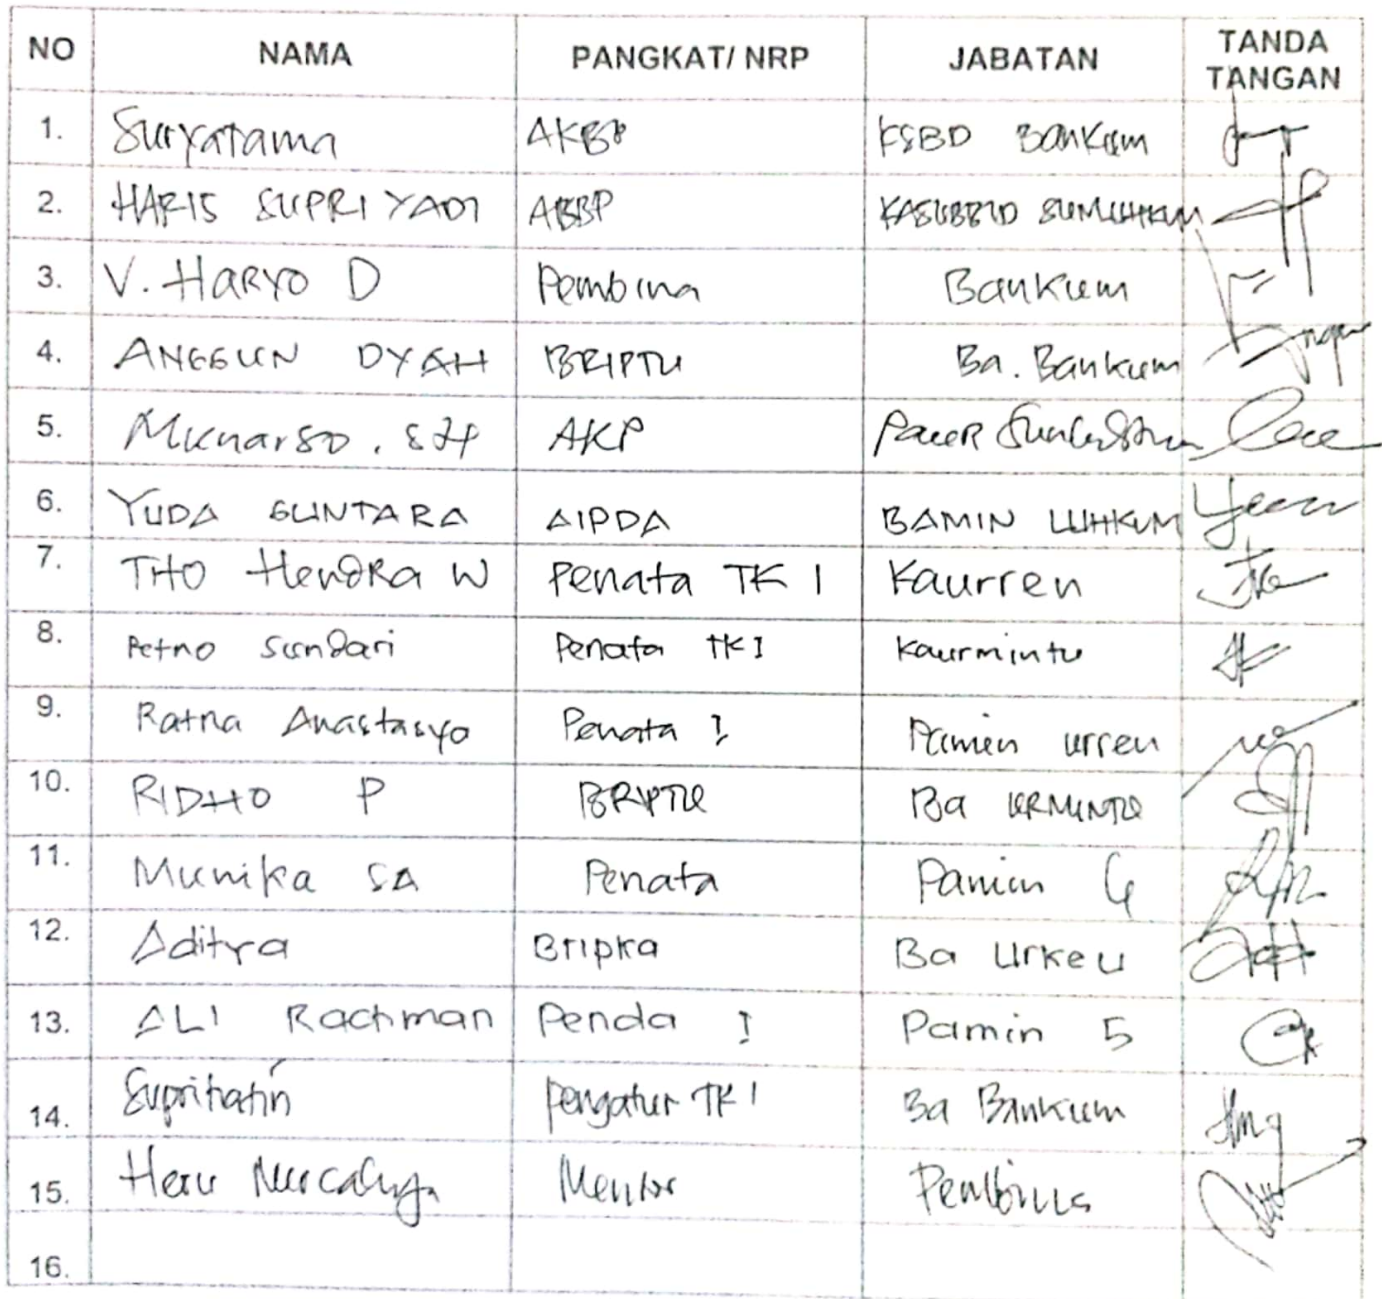 NO NAMA PANGKAT/ NRP JABATAN TANDA TANGAN
1. Suryatama AKBP KSBD BANKUM
2. HARIS SUPRIYADI AKBP KASUBBID SUNLUHKUM
3. V. HARYO D Pembina Bankum
4. ANGGUN DYAH BRIPTU Ba. Bankum
5. Munarso. SH AKP PAUR
6. YUDA GUNTARA AIPDA BAMIN LUHKUM
7. TITO HendRa W Penata TK I Kaurren
8. Retno Sundari Penata TK I Kaurmintu
9. Ratna Anastasya Penata I Pamin urren
10. RIDHO P BRIPTU Ba URMINTU
11. Munika SA Penata Pamin
12. Aditya Bripka Ba Urkeu
13. ALI Rachman Penda I Pamin 5
14. Suprihatin Pengatur TK I Ba Bankum
15. Heru Nurcahya
16.